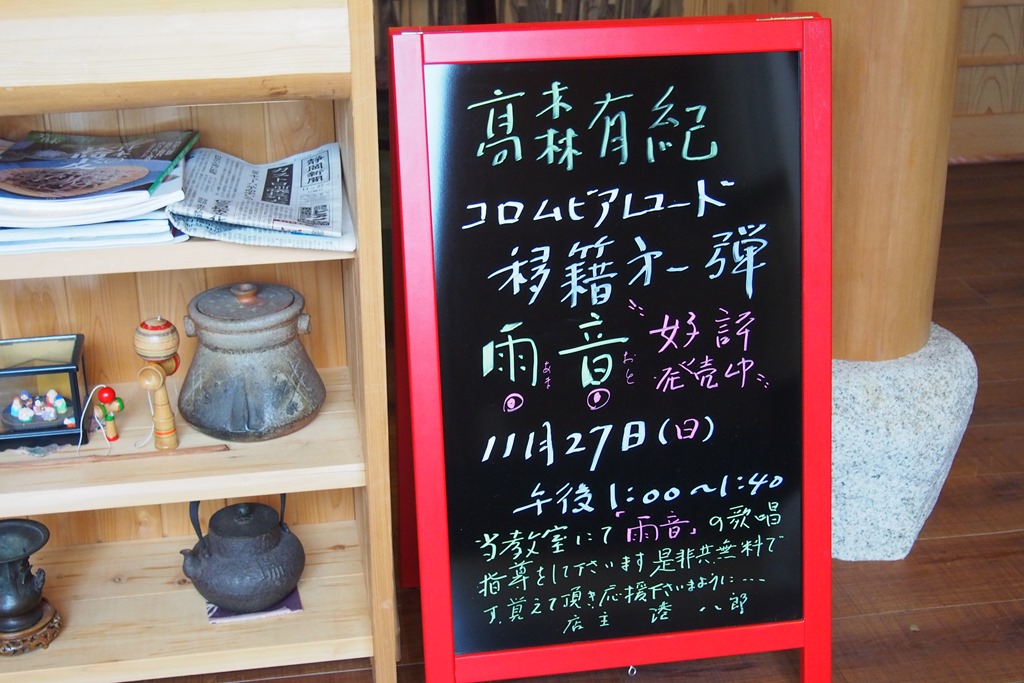 静岡新聞
高森有紀
コロムビアレコード
移籍才一弾
雨音 好評
あま おと 発売中
11月27日(日)
午後1:00〜1:40
当教室にて「雨音」の歌唱
指導をして下さいます是非共無料で
す。覚えて頂き応援下さいまように....
店主 陸 八郎